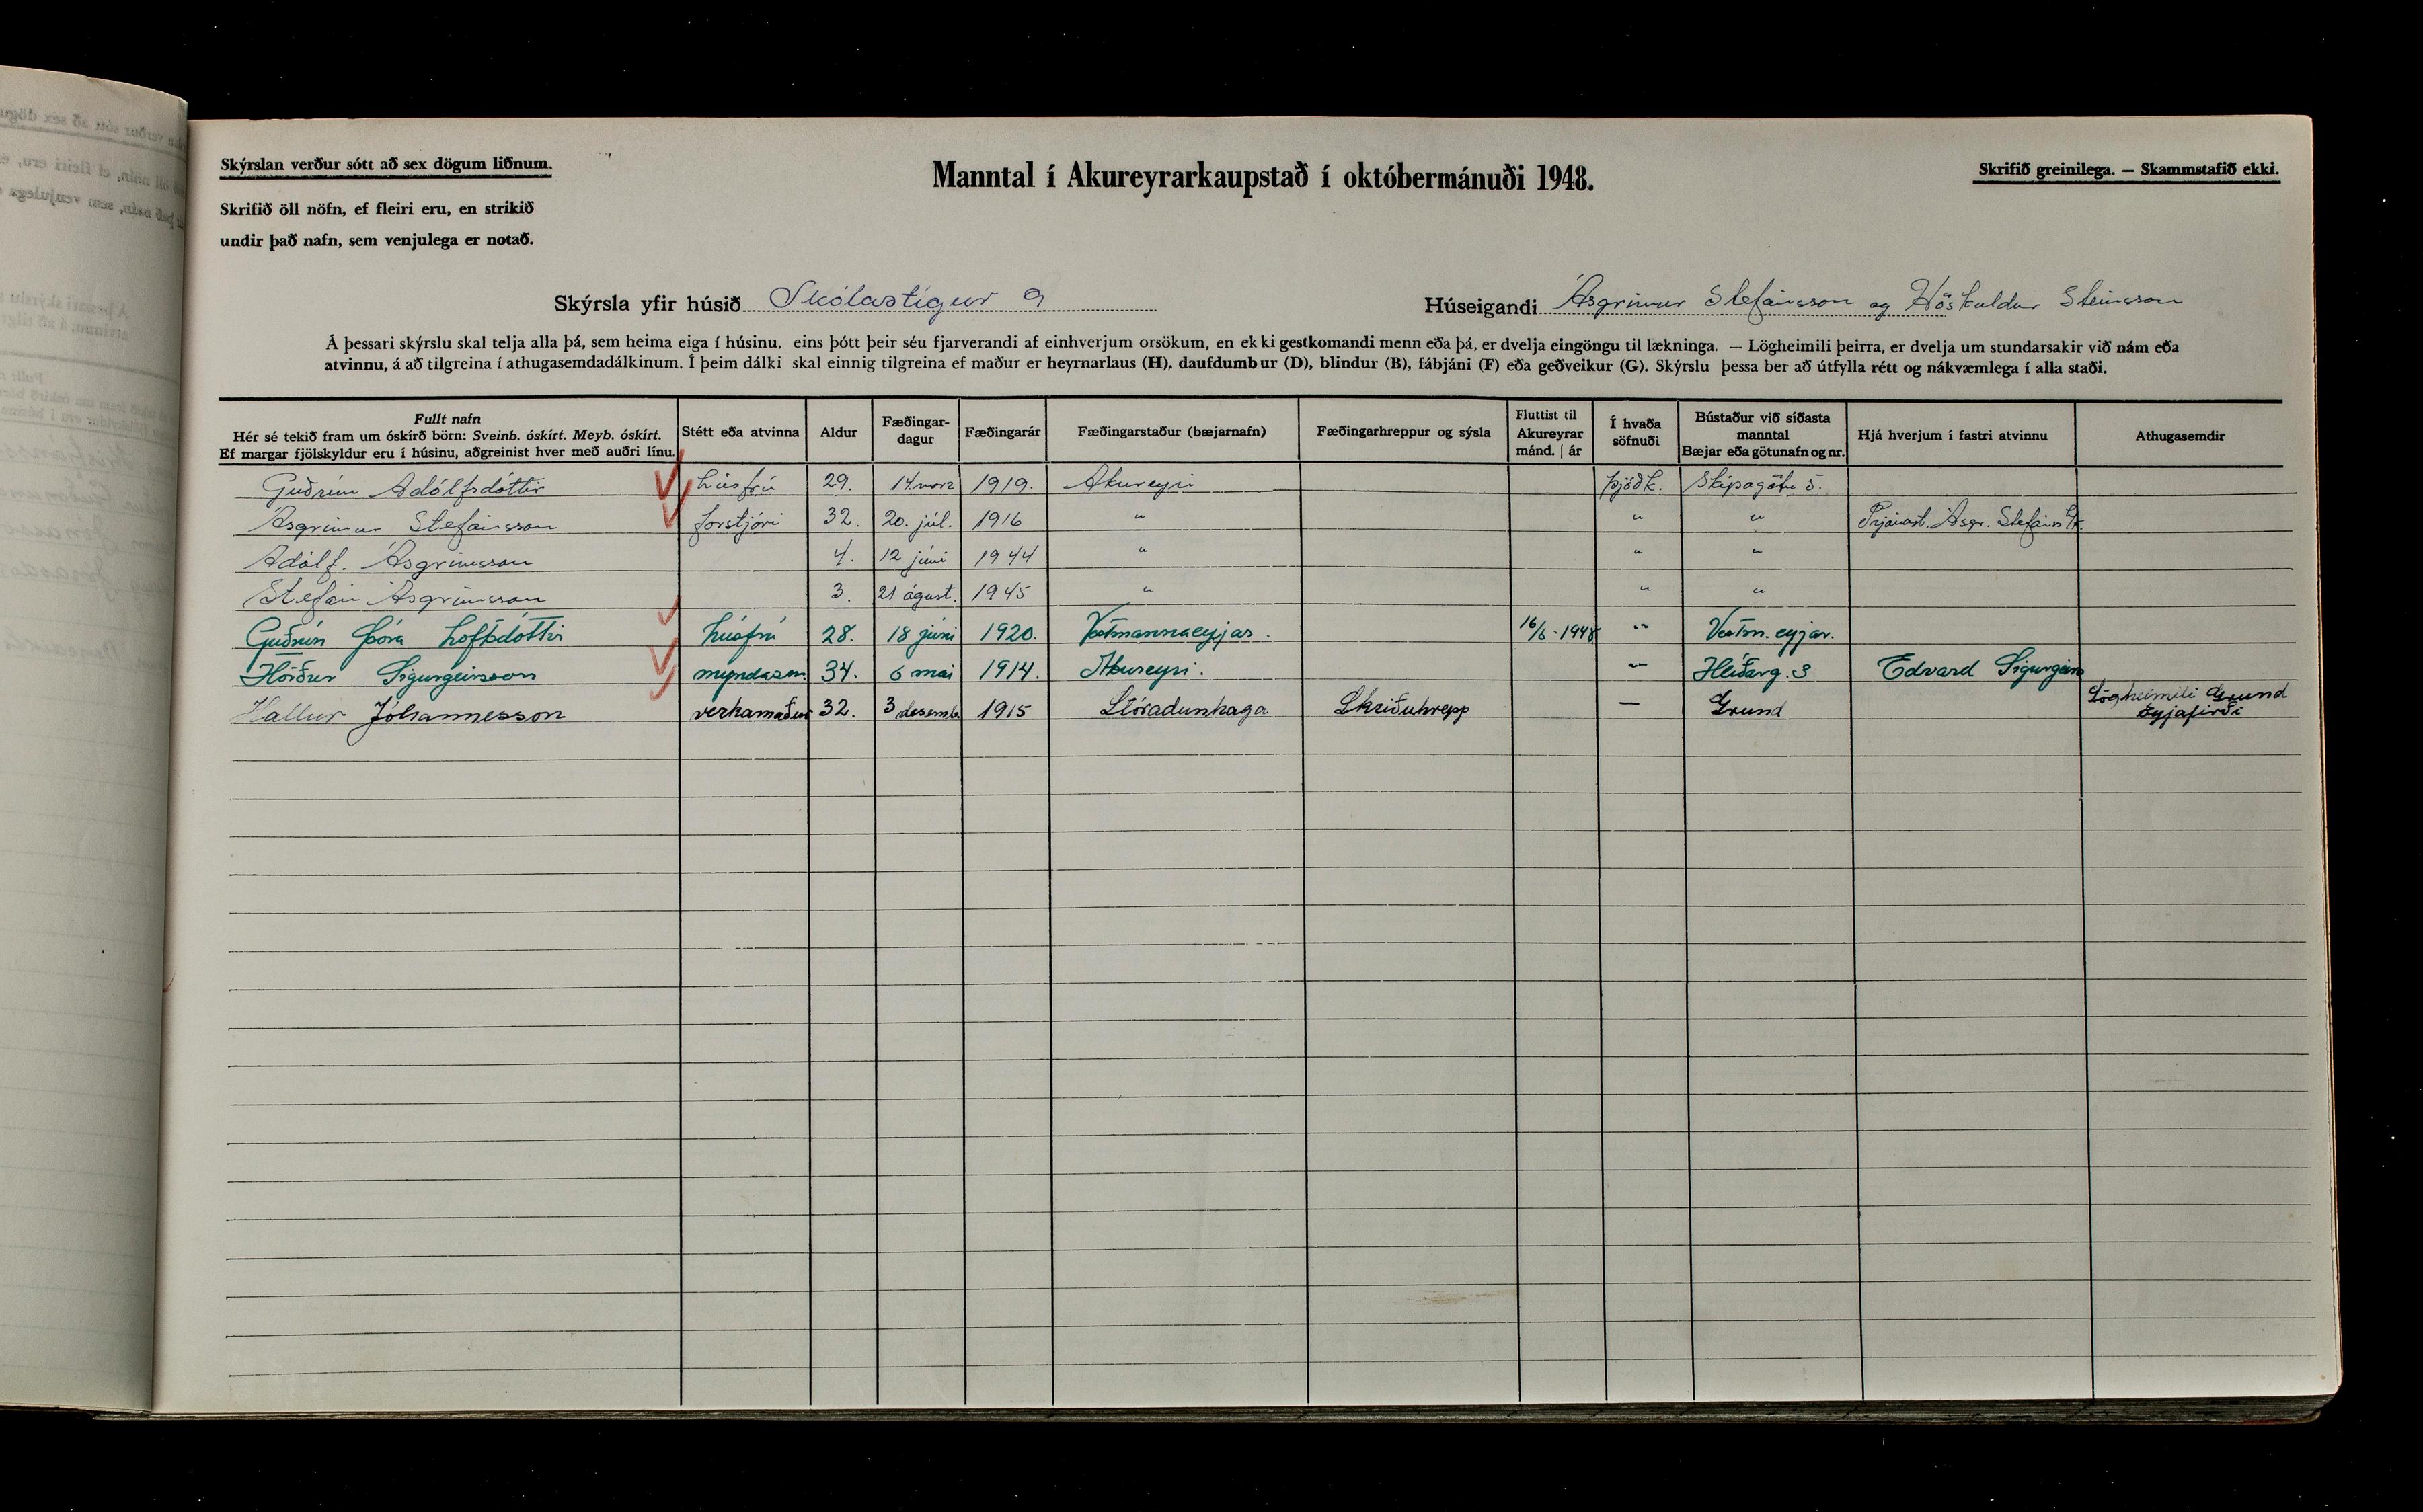 Skýrslan verður sótt að sex dögum liðnum.
Manntal í Akureyrarkaupstað í októbermánuði 1948.
Skrifið greinilega. — Skammstafið ekki.
Skrifið öll nöfn, ef fleiri eru, en strikið
undir það nafn, sem venjulega er notað.
Skýrsla yfir húsið Skólastígur 9
Húseigandi Ásgrímur Stefánsson og Höskuldur Steinsson
Á þessari skýrslu skal telja alla þá, sem heima eiga í húsinu, eins þótt þeir séu fjarverandi af einhverjum orsökum, en ekki gestkomandi menn eða þá, er dvelja eingöngu til lækninga. — Lögheimili þeirra, er dvelja um stundarsakir við nám eða
atvinnu, á að tilgreina í athugasemdadálkinum. Í þeim dálki skal einnig tilgreina ef maður er heyrnarlaus (H), daufdumbur (D), blindur (B), fábjáni (F) eða geðveikur (G). Skýrslu þessa ber að útfylla rétt og nákvæmlega í alla staði.
Fullt nafn
Hér sé tekið fram um óskírð börn: Sveinb. óskírt. Meyb. óskírt.
Ef margar fjölskyldur eru í húsinu, aðgreinist hver með auðri línu.
Stétt eða atvinna
Aldur
Fæðingar-
dagur
Fæðingarár
Fæðingarstaður (bæjarnafn)
Fæðingarhreppur og sýsla
Fluttist til
Akureyrar
mánd. | ár
Í hvaða
söfnuði
Bústaður við síðasta
manntal
Bæjar eða götunafn og nr.
Hjá hverjum í fastri atvinnu
Athugasemdir
Guðrún Adólfsdóttir húsfrú 29. 14. marz 1919. Akureyri þjóðk. Skipagötu 5.
Ásgrímur Stefánsson forstjóri 32. 20. júl. 1916 " " " Prjónast. Ásgr. Stefáns
Adólf. Ásgrímsson 4. 12 júní 1944 " " "
Stefán Ásgrímsson 3. 21 ágúst. 1945 " " "
Guðrún Þóra Loftsdóttir húsfrú 28. 18 júní 1920. Vestmannaeyjar. 16/6-1948 " Vestm. eyjar.
Hörður Sigurgeirsson myndasm. 34. 6 mai 1914. Akureyri. " Heiðarg. 3 Edvard Sigurgeirs
Hallur Jóhannesson verkamaður 32. 3 desemb. 1915 Stóradunhaga Skriðuhrepp — Grund Lögheimili Grund
Eyjafirði